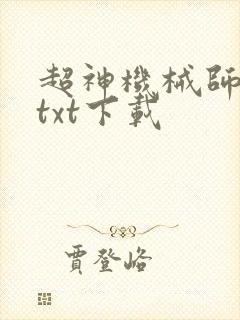 超神機械師
txt下載
賈登峪